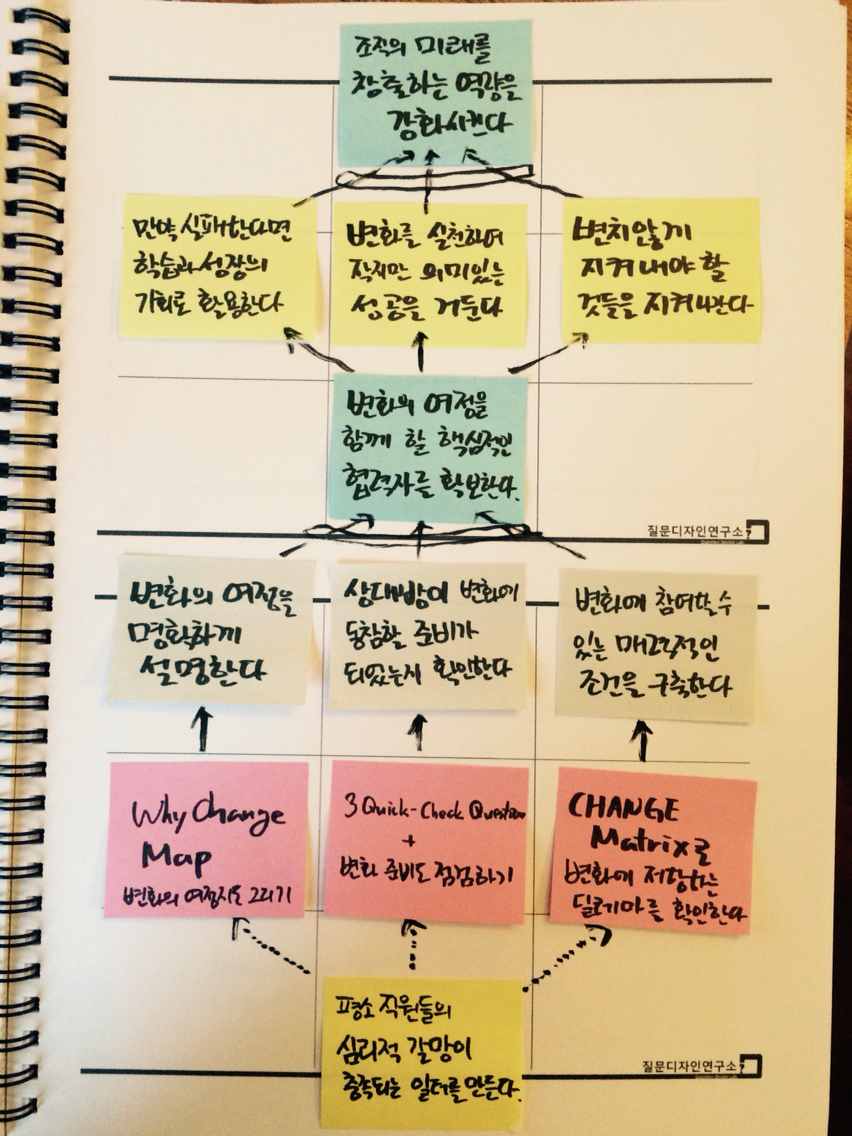 조직의 미래를
창출하는 역량을
강화시킨다
만약 실패한다면
학습과 성장의
기회로 활용한다
변화를 실천하여
작지만 의미있는
성공을 거둔다
변치않게
지켜내야 할
것들을 지켜나간다
변화의 여정을
함께 할 핵심적인
협력자를 확보한다.
질문디자인연구소
변화의 여정을
명확하게
설명한다
상대방이 변화에
동참할 준비가
되었는지 확인한다
변화에 참여할 수
있는 매력적인
조건을 구축한다
Why Change
Map
변화의 여정지도 그리기
3 Quick-Check Question
+
변화 준비도 점검하기
CHANGE
Matrix로
변화에 저항하는
딜레마를 확인한다
평소 직원들의
심리적 갈망이
충족되는 일터를 만든다.
질문디자인연구소